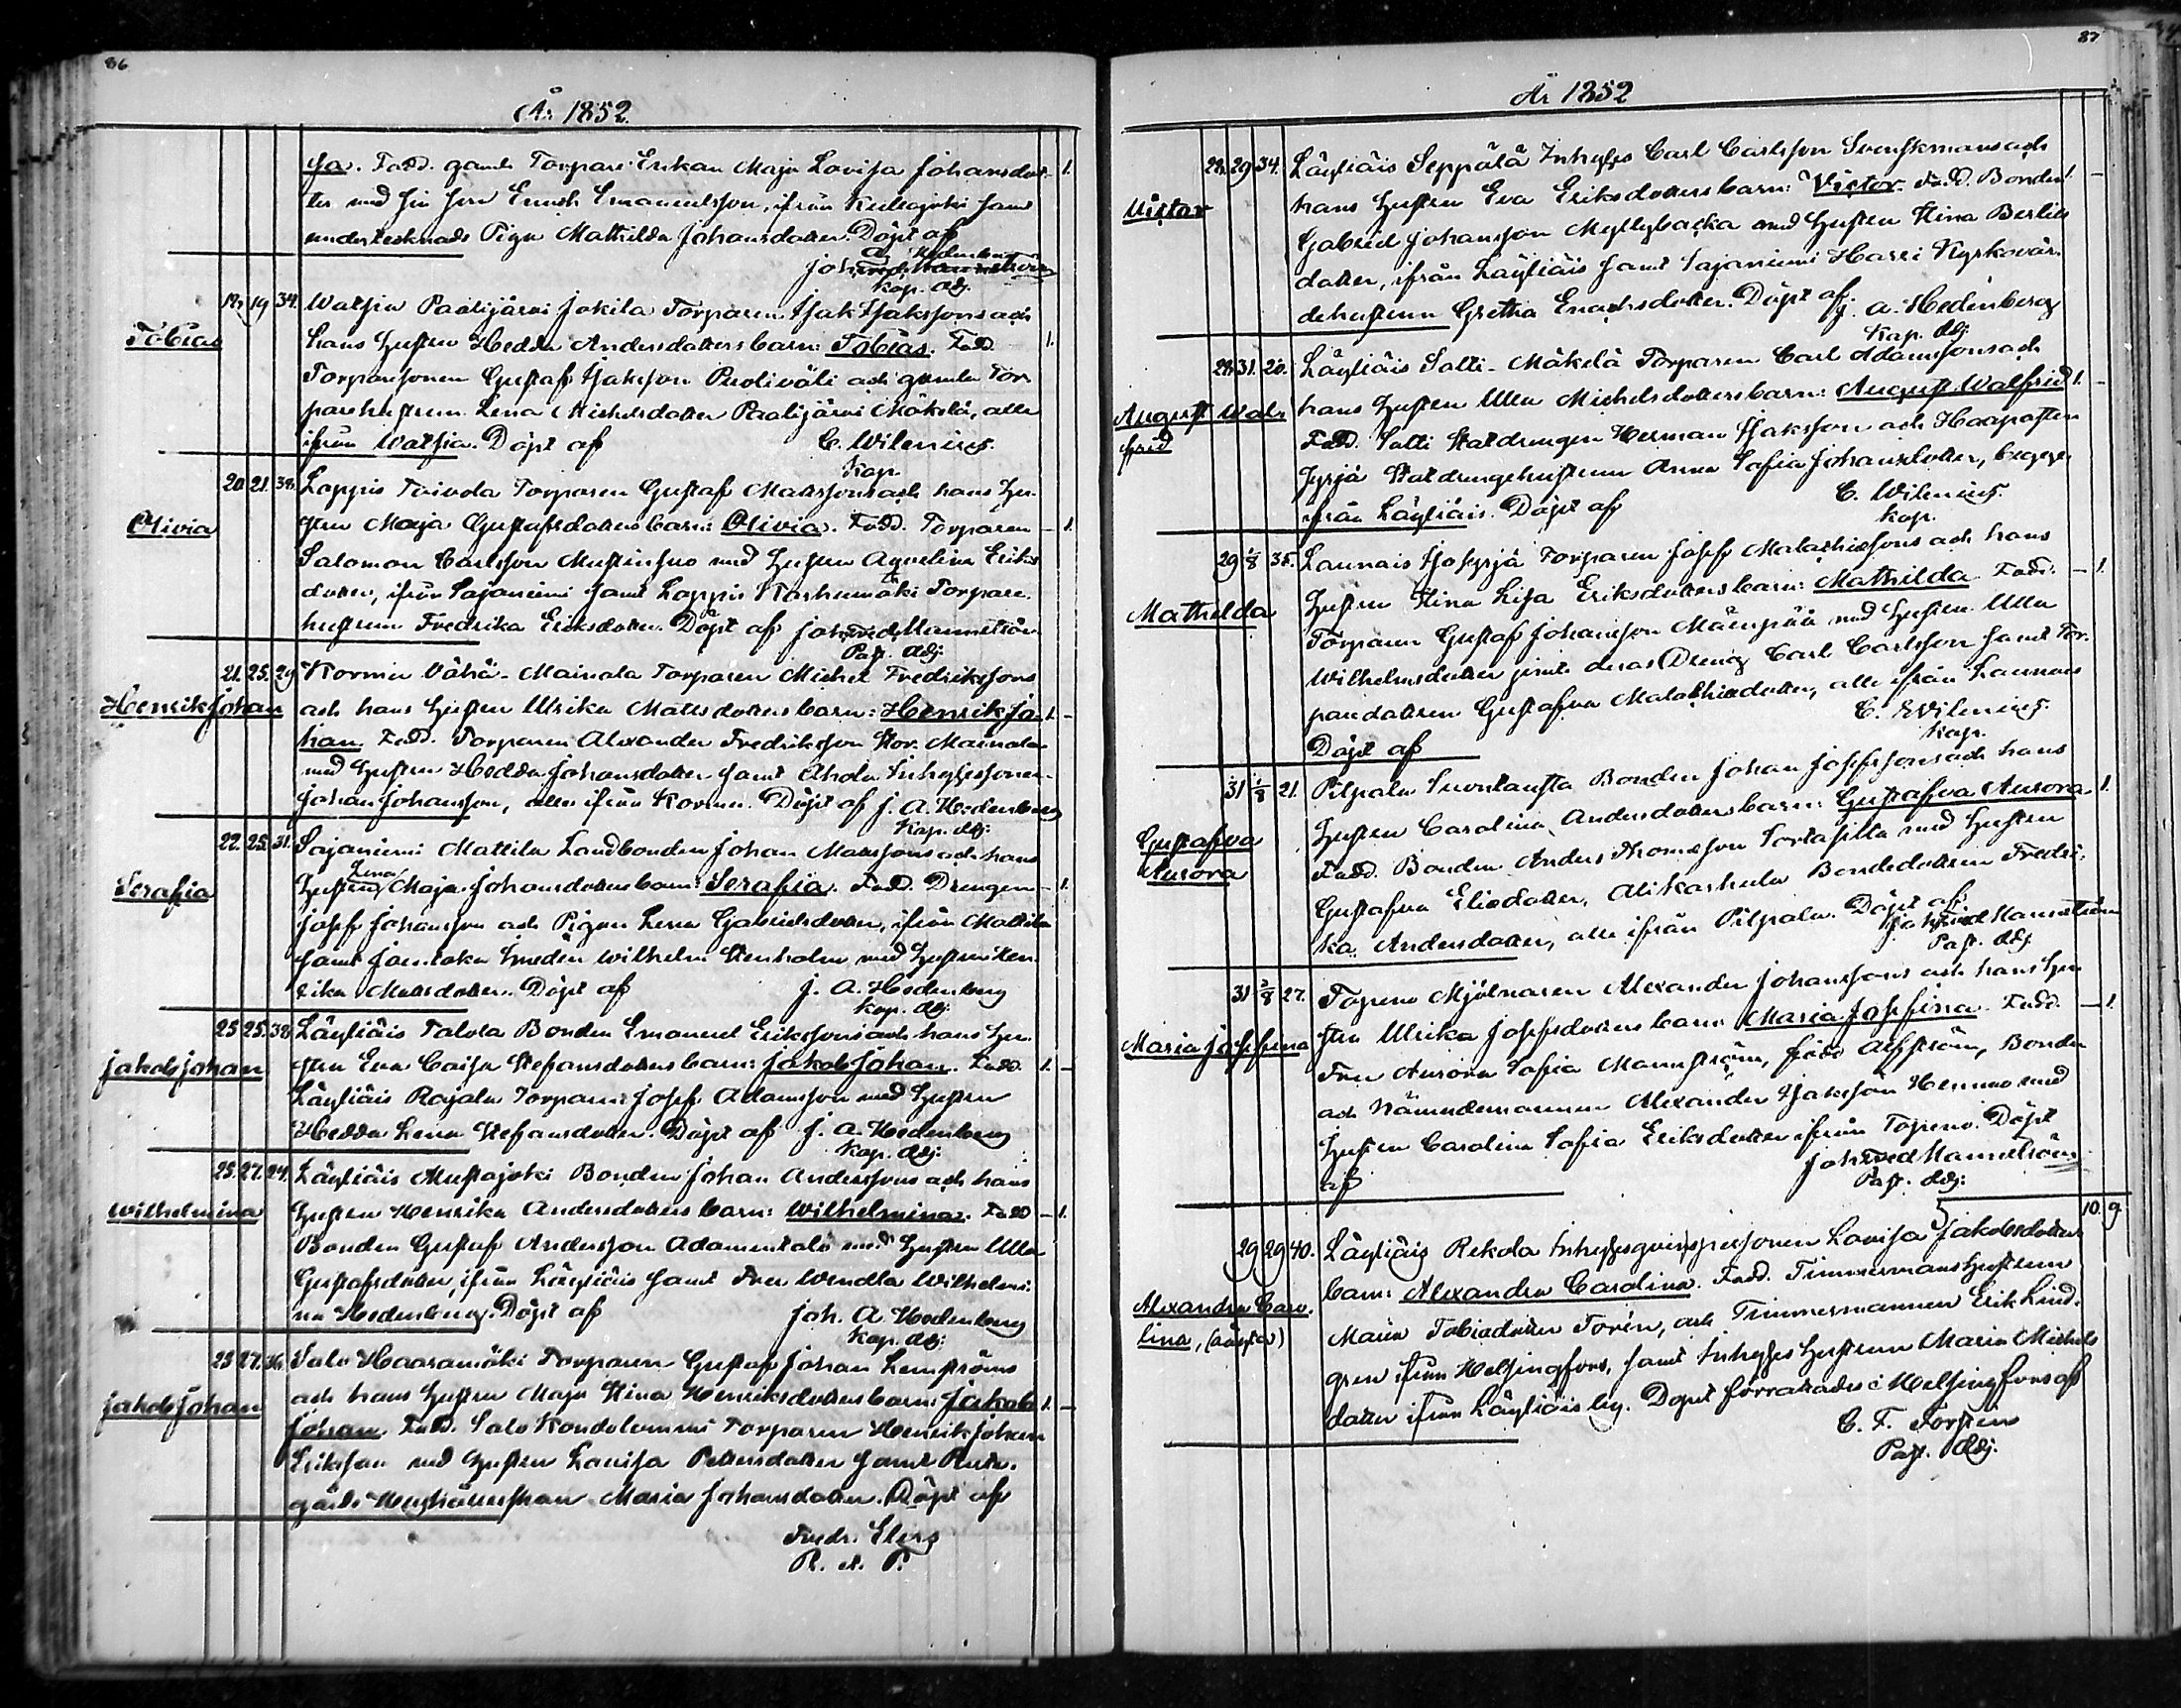 86
År 1852.
sa. Fadd. gamle Torpare Enkan Maja Lovisa Johansdot- 1.
ter med sin Son Enoch Emanuelsson, ifrån Kullajoki samt
undertecknads Piga Mathilda Johansdotter. Döpt af
Kap. Adj.
19 34. Watsia Paalijärvi Jokila Torparen Isak Isakssons och
Tobias hans Hustru Hedda Andersdotters barn: Tobias. Fadd. 1.
Torparesonen Gustaf Isaksson Puoliväli och gamla Tor-
parehustrun Lena Michelsdotter Paalijärvi Mäkelä, alla
ifrån Watsia. Döpt af C. Wilenius.
Kap.
20 21. 38. Loppis Toivola Torparen Gustaf Mattssons och hans Hu-
Olivia stru Maja Gustafsdotters barn: Olivia. Fadd. Torparen — 1.
Salomon Carlsson Mustinsuo med Hustru Aqvelina Eriks
dotter, ifrån Sajaniemi samt Loppis Torpare-
hustrun Fredrika Eriksdotter. Döpt af Joh. Fred. Mannström
Past. Adj.
21. 25. 29 Kormu Vähä-Mainala Torparen Michel Fredrikssons
Henrik Johan och hans Hustru Ulrika Mattsdotters barn: Henrik Jo- 1. —
han. Fadd. Torparen Alexander Fredriksson Stor-Mainala
med Hustru Hedda Johansdotter samt Ahola Inhysessonen
Johan Johansson, alla ifrån Kormu. Döpt af J. A. Hedenberg
Kap. Adj.
22. 25. 31. Sajaniemi Mattila Landbonden Johan Mattssons och hans
Serafia Hustru Lena Maja Johansdotters barn: Serafia. Fadd. Drängen — 1.
Josef Johansson och Pigan Lena Gabrielsdotter, ifrån Mattila
samt Smeden Wilhelm Stenholm med Hustru Hen-
rika Mattsdotter. Döpt af J. A. Hedenberg
Kap. Adj.
25 25. 38 Läyliäis Talola Bonden Emanuel Erikssons och hans Hu-
Jakob Johan stru Eva Caisa Stefansdotters barn: Jakob Johan. Fadd. 1. —
Läyliäis Rajala Torparen Josef Adamsson med Hustru
Hedda Lena Stefansdotter. Döpt af J. A. Hedenberg
Kap. Adj.
25. 27. 24. Läyliäis Mustajoki Bonden Johan Anderssons och hans
Wilhelmina Hustru Henrika Andersdotters barn: Wilhelmina. Fadd — 1.
Bonden Gustaf Andersson Adamintalo med Hustru Ulla
Gustafsdotter, ifrån Läyliäis samt Fru Wendla Wilhelmi-
na Hedenberg. Döpt af Joh. A. Hedenberg
Kap. Adj.
23 27. 36. Salo Haaramäki Torparen Gustaf Johan Lemströms
Jakob Johan och hans Hustru Maja Stina Henriksdotters barn: Jakob 1. —
Johan. Fadd. Salo Kondolammi Torparen Henrik Johan
Eriksson med Hustru Lovisa Pettersdotter samt
gårds Maria Johansdotter. Döpt af
Fredr. Elers
P. A. P.
87
År 1852
28. 29 34. Läyliäis Seppälä Inhyses Carl Carlsson Svenskmans och
Victor hans Hustru Eva Eriksdotters barn: Victor. Fadd. Bonden 1. —
Gabriel Johansson Myllybacka med Hustru Stina Berlin
dotter, ifrån Läyliäis samt Sajaniemi Harri Kyrkovär-
dehustrun Gretha Enochsdotter. Döpt af J. A. Hedenberg
Kap. Adj.
28. 31. 20. Läyliäis Salli-Mäkelä Torparen Carl Adamssons och
August Wal- hans Hustru Ulla Michelsdotters barn: August Walfrid 1. —
frid Fadd. Salli Statdrängen Herman Isaksson och Haapasten
Syrjä Statdrängehustrun Anna Sofia Johansdotter, begge
ifrån Läyliäis. Döpt af C. Wilenius.
Kap.
29 1/8 35. Launais Torparen Josef Malachiassons och hans
Mathilda Hustru Stina Lisa Eriksdotters barn: Mathilda. Fadd. — 1.
Torparen Gustaf Johansson Mäenpää med Hustru Ulla
Wilhelmsdotter jemte deras Dreng Carl Carlsson samt Tor-
paredottren Gustafva Malachiadotter, alla ifrån Launais
Döpt af C. Wilenius.
Kap.
31 1/8 21. Pilpala Bonden Johan Josefssons och hans
Gustafva Hustru Carolina Andersdotters barn: Gustafva Aurora 1.
Aurora Fadd. Bonden Anders Thomasson med Hustru
Gustafva Eliedotter, Bondedottren Fredri-
ka Andersdotter, alla ifrån Pilpala. Döpt af
Joh. Fred. Mannström
Past. Adj.
31 /8 27. Topeno Mjölnaren Alexander Johanssons och hans Hu-
Maria Josefina stru Ulrika Josefsdotters barn: Maria Josefina. Fadd. — 1.
Fru Aurora Sofia Mannström, född Alfström, Bonden
och Nämndemannen Alexander Isaksson Hemmo med
Hustru Carolina Sofia Eriksdotter ifrån Topeno. Döpt
af Joh. Fred. Mannström
Past. Adj.
10. 9.
29 29 40. Läyliäis Rekola Inhysesqvinspersonen Lovisa Jakobsdotters
Alexandra Caro- barn: Alexandra Carolina. Fadd. Timmermanshustrun
lina, (oäkta) Maria Tobiadotter Torin, och Timmermannen Erik Lind-
gren ifrån Helsingfors, samt Inhyses Hustrun Maria Michels
dotter ifrån Läyliäis by. Dopet förrättades i Helsingfors af
C. F. Forstén
Past. Adj.